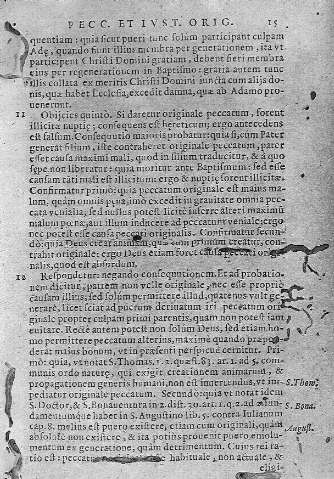 PECC. ET IVST. ORIG. 15
quentiam; quia sicut pueri tunc solum participant culpam
Adæ, quando fiunt illius membra per generationem, ita vt
participent Christi Domini gratiam, debent fieri membra
eius per regenerationem in Baptismo: gratia autem tunc
illis collata ex meritis Christi Domini iuncta cum alijs do-
nis, quæ habet Ecclesia, excedit damna, quæ ab Adamo pro-
uenerunt.
11 Obijcies quintò. Si daretur originale peccatum, forent
illicitæ nuptiæ: consequens est hæreticum; ergo antecedens
est falsum. Consequutio maioris probatur: quia si, cum Pater
generat filium, iste contrahe-et originale peccatum, pater
esset causa maximi mali, quod in filium traducitur, & à quo
sæpe non liberatur: quia moritur ante Baptismum: sed esse
causam tanti mali est illicitum ergo & nuptiæ forent illicitæ.
Confirmatur primò: quia peccatum originale est maius ma-
lum, quàm omnis pœna, imò excedit in grauitate omnia pec-
cata venialia, sed nullus potest licitè inferre alteri maximum
malum pœnæ, aut illum inducere ad peccatum veniale; ergo
nec potest esse causa peccati originalis. Confirmatur secun-
dò: quia Deus creat animam, quæ cum primum creatur, con-
trahit originale: ergo Deus etiam foret causa peccati origi-
nalis, quod est absurdum.
12 Respondetur: negando consequutionem. Et ad probatio-
nem dicitur, patrem non velle originale, nec esse propriè
causam illius, sed solùm permittere illud, quatenus vult ge-
nerare, licet sciat ad puerum deriuatum iri peccatum ori-
ginale propter culpam primi parentis, quam non potest iam
euitare. Rectè autem potest non solùm Deus, sed etiam ho-
mo permittere peccatum alterius, maximè quando præpon-
derat maius bonum, vt in præsenti perspicuè cernitur. Pri-
mò: quia, vt notat S. Thomas. 1. 2. quæst. 83. art. 1. ad 5. com-
munis ordo naturæ, qui exigit creationem animarum, &
propagationem generis humani, non est intertundus, vt im- S. Thom.
pediatur originale peccatum. Secundò: quia vt notat idem
S. Doctor, & S. Bonauentura in 2. dist. 30. art. 1. q. 2. ad S. Bona.
damentumque habetur in S. Augustino lib. 5. contra Iulianum
cap. 8. melius est puero existere, etiam cum originali, quàm August.
absolutè non existere, & ita potius prouenit puero emolu-
mentum ex generatione, quàm detrimentum. Cuius rei ra-
tio est: peccatum habituale, non actuale, &
eligi-